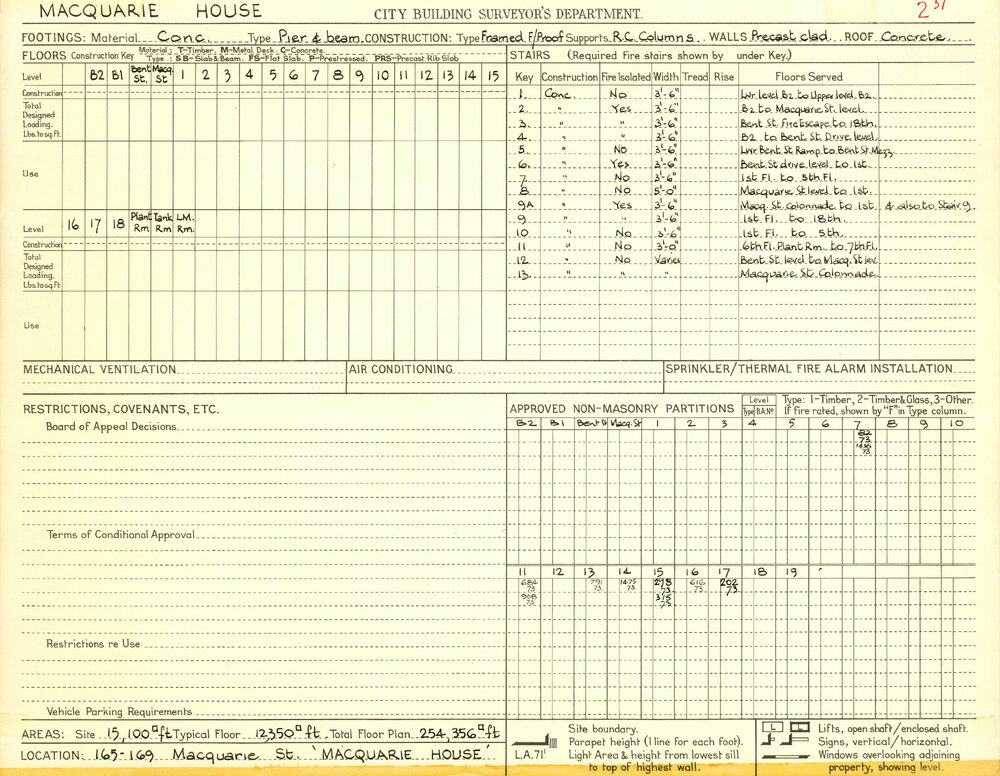 MACQUARIE HOUSE
CITY BUILDING SURVEYOR'S DEPARTMENT.
2 31
FOOTINGS: Material Conc. Type Pier & beam. CONSTRUCTION: Type Framed F/Proof Supports R.C. Columns. WALLS Precast clad. ROOF Concrete.
FLOORS Construction Key Material: T-Timber. M-Metal Deck. C-Concrete.
Type: SB-Slab & Beam. FS-Flat Slab. P-Prestressed. PRS-Precast Rib Slab
STAIRS (Required Fire stairs shown by under Key.)
Level B2 B1 Bent St. Macq. St 1 2 3 4 5 6 7 8 9 10 11 12 13 14 15
Construction
Total Designed Loading. Lbs. to sq. ft.
Use
Level 16 17 18 Plant Rm Tank Rm L.M. Rm.
Construction
Total Designed Loading. Lbs. to sq. ft.
Use
Key Construction Fire Isolated Width Tread Rise Floors Served
1. Conc. No 3'-6" Lwr level B2 to Upper level B2.
2. " Yes 3'-6" B2 to Macquarie St. level.
3. " " 3'-6" Bent St. Fire Escape to 18th.
4. " " 3'-6" B2 to Bent St. Drive level.
5. " No 3'-6" Lwr Bent St Ramp to Bent St. Mezz.
6. " Yes 3'-6" Bent St drive level to 1st.
7 " No 3'-6" 1st Fl. to 5th Fl.
8 " No 5'-0" Macquarie St level to 1st.
9A " Yes 3'-6" Macq. St. Colonnade to 1st. & also to Stair 9.
9 " " 3'-6" 1st Fl. to 18th.
10 " No 3'-6" 1st Fl. to 5th.
11 " No 3'-0" 6th Fl. Plant Rm. to 7th Fl.
12 " No Varies Bent St level to Macq. St lev.
13. " " " Macquarie St Colonnade.
MECHANICAL VENTILATION
AIR CONDITIONING
SPRINKLER/THERMAL FIRE ALARM INSTALLATION
RESTRICTIONS, COVENANTS, ETC.
Board of Appeal Decisions.
Terms of Conditional Approval
Restrictions re Use
Vehicle Parking Requirements
APPROVED NON-MASONRY PARTITIONS
Level
Type B.A.Nº
Type: 1-Timber, 2-Timber & Glass, 3-Other.
If fire rated, shown by "F" in Type column.
B2 B1 Bent St Macq. St 1 2 3 4 5 6 7 8 9 10
82
73
1436
73
11 12 13 14 15 16 17 18 19
684 791 1475 298 616 202
73 73 73 73 73 73
908 375
73 73
AREAS: Site 15,100 □ft Typical Floor 12350 □ft. Total Floor Plan. 254,356 □ft
LOCATION: 165-169 Macquarie St. 'MACQUARIE HOUSE'
Site boundary.
Parapet height (1 line for each foot).
L.A. 71' Light Area & height from lowest sill
to top of highest wall.
L Lifts, open shaft/enclosed shaft.
Signs, vertical/horizontal.
Windows overlooking adjoining
property, showing level.